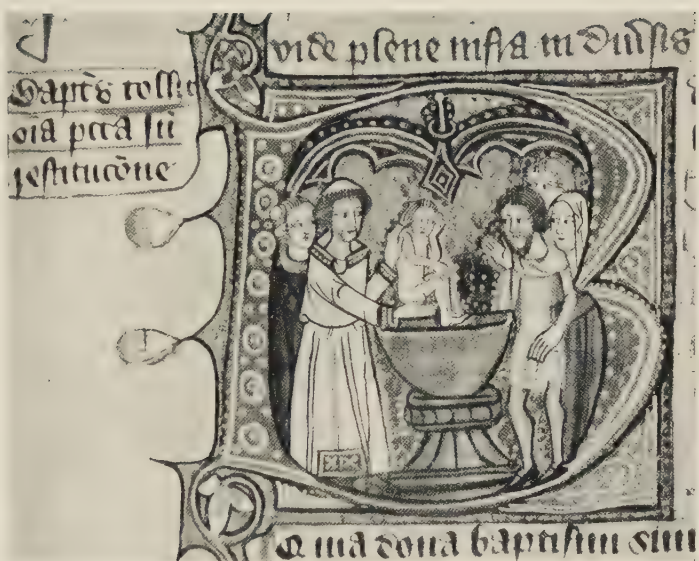 vide plene infra in diuersis
Baptũs tollit
oĩa pctã sñ
restitucõne
B
Quia dona baptismi sunt